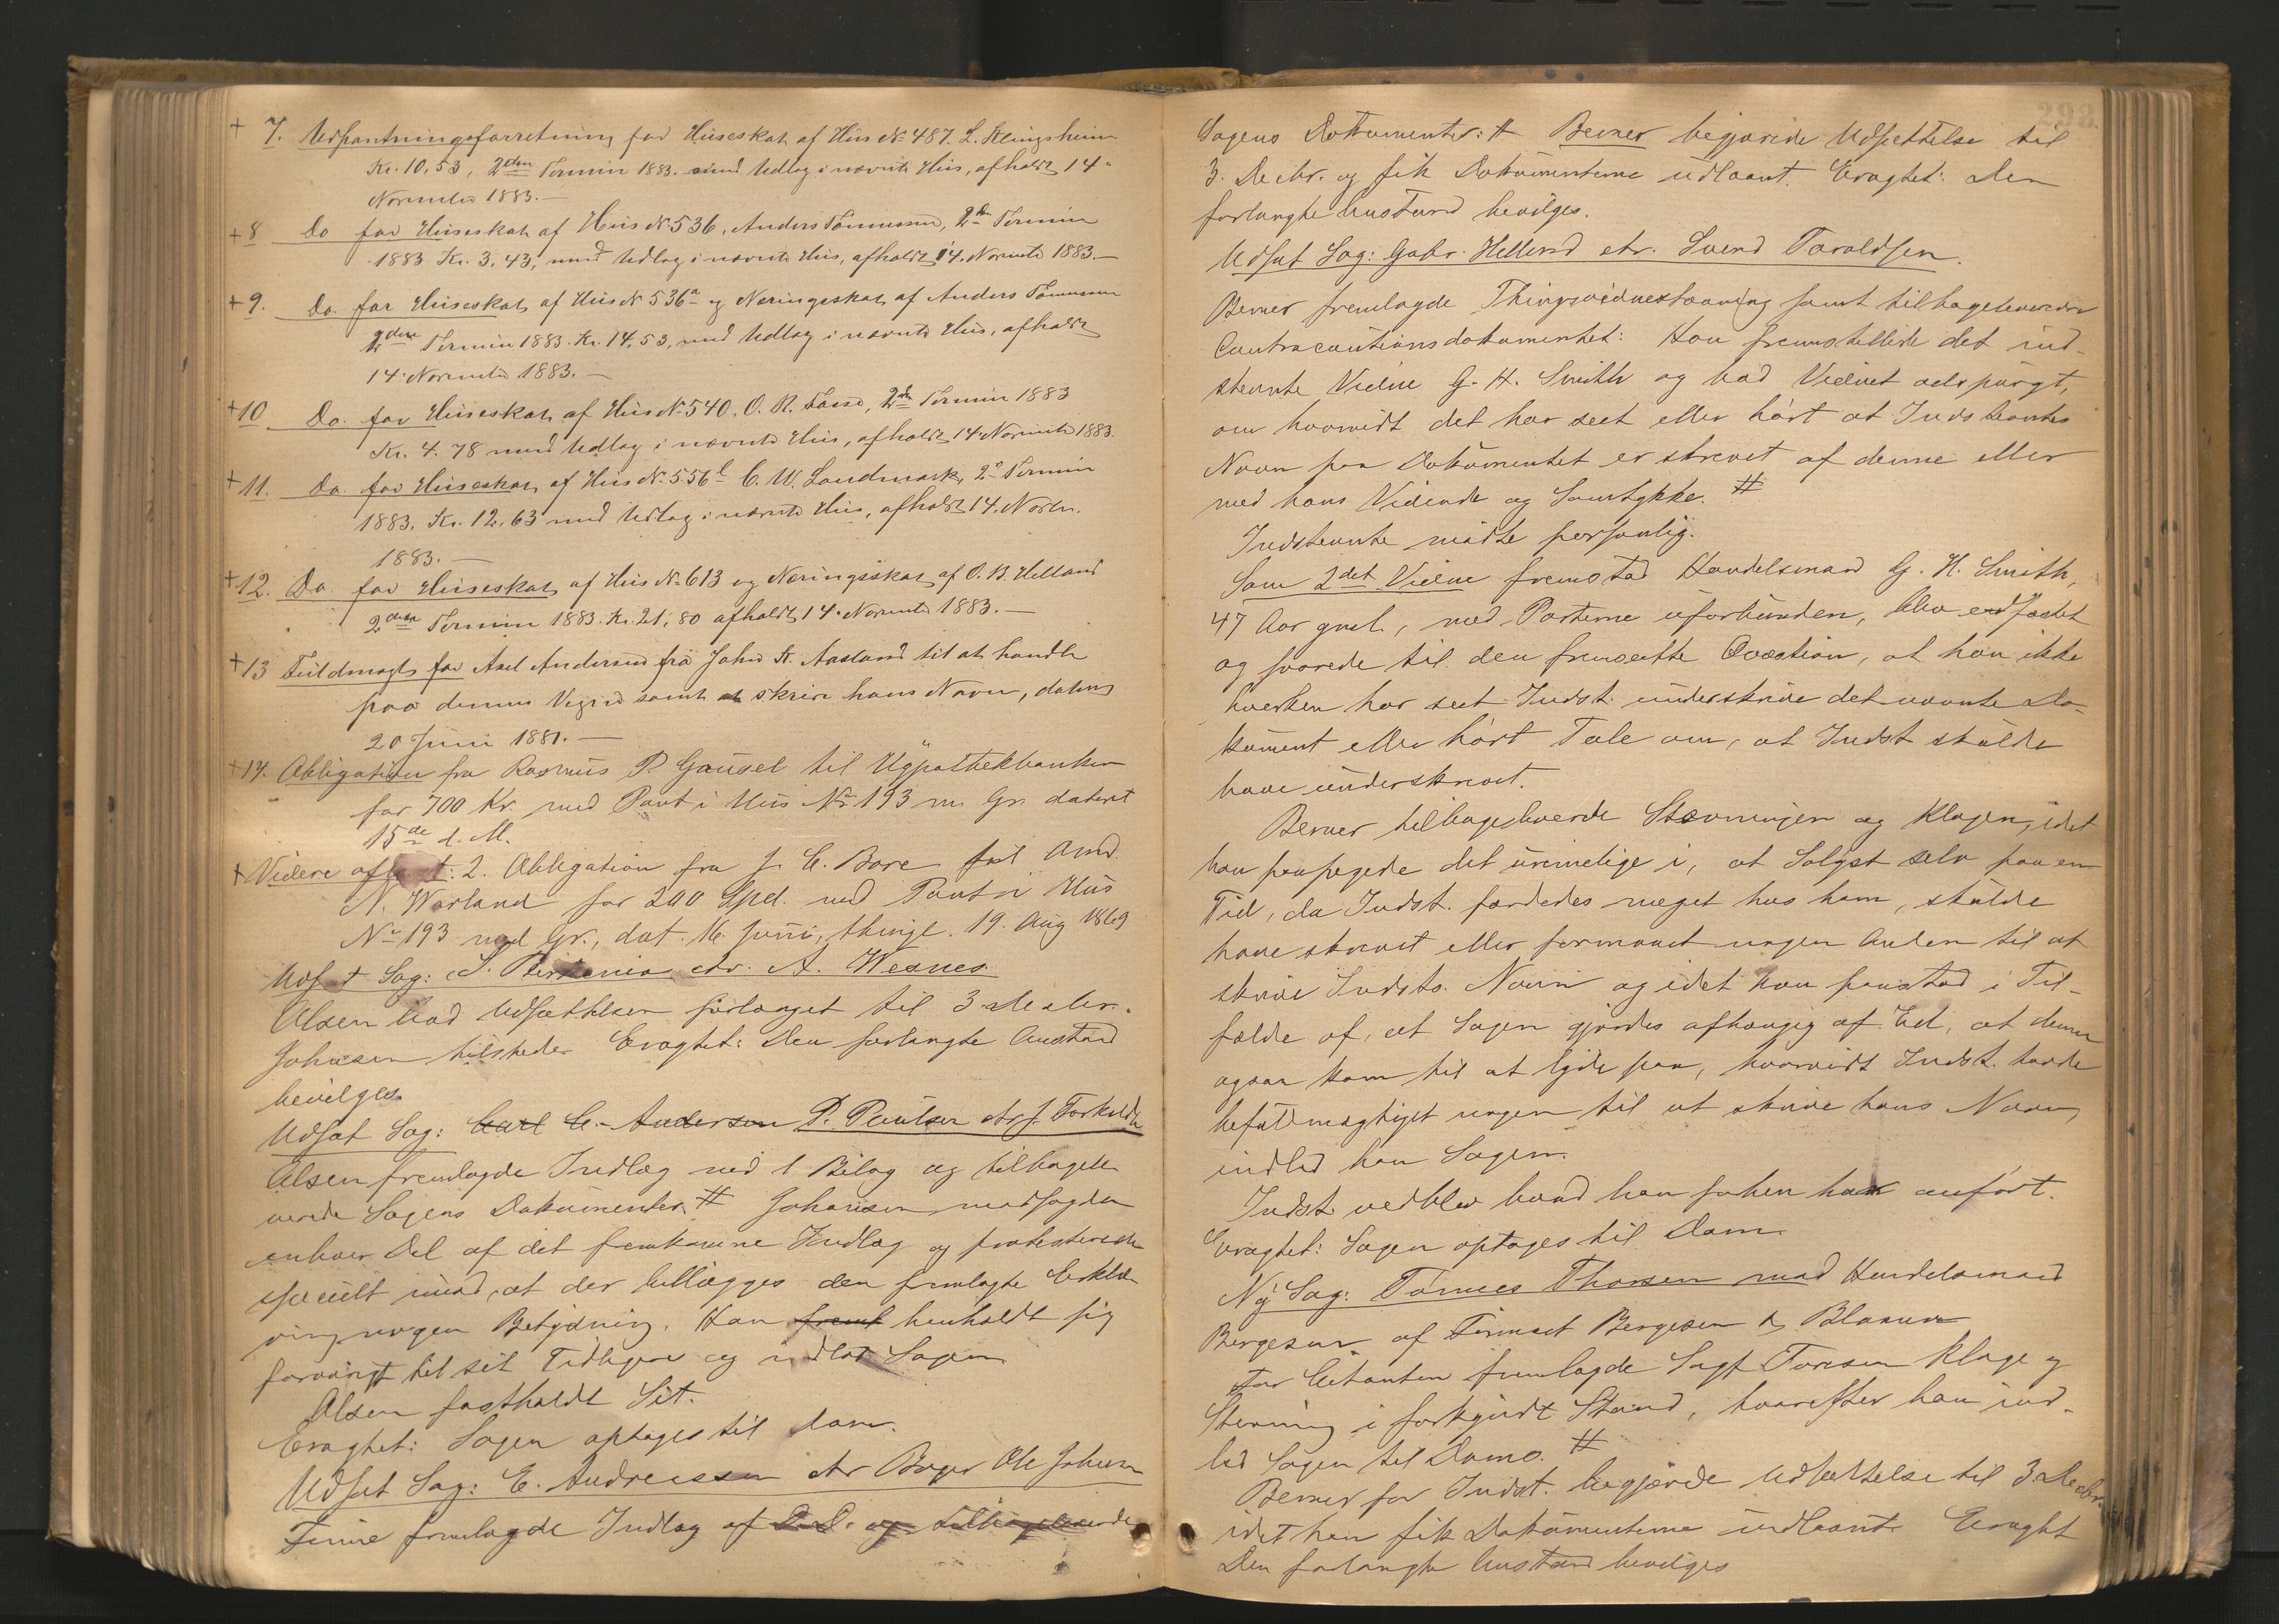 + 7. Udpantningsforretning for Huseskat af Hus No 487. L. Kleingsheim
Kr. 10,53, 2den Termin 1883. med Udlæg i nævnte Hus, afholdt 14
November 1883.—
+ 8 Do for Huseskat af Hus No 536, Anders Tønnesen, 2den Termin
1883 Kr. 3,43, med Udlæg i nævnte Hus, afholdt 14. Novemb 1883.—
+ 9. Do. for Huseskat af Hus No 536a og Næringsskat af Anders Tønnesen
2den Termin 1883. Kr. 14,53, med Udlæg i nævnte Hus, afholdt
14 Novemb 1883.—
+ 10 Do. for Huseskat af Hus No 540. O. R. 2den Termin 1883
Kr. 4.78 med Udlæg i nævnte Hus, afholdt 14 Novemb 1883.
+ 11. Do. for Huseskat af Hus No 556 C. W. Landmark, 2den Termin
1883. Kr. 12.63 med Udlæg i nævnte Hus, afholdt 14. Novbr.
1883.—
+ 12. Do for Huseskat af Hus No 613 og Næringsskat af O. B. Helland
2den Termin 1883. Kr. 21,80 afholdt 14 Novemb 1883.—
+ 13 Fuldmagt for Axel Andersen fra John K. Aasland til at handle
paa dennes Vegne samt at skrive hans Navn, dateret
20 Juni 1881.—
+ 14. Obligation fra Rasmus P. Gausel til Hypothekbanken
for 700 Kr. med Pant i Hus No 193 m. Gr. dateret
15de d. M.
+ Videre aflæst: 2. Obligation fra J. C. Bore til Amd.
N. Warland for 200 Spd. med Pant i Hus
No 193 med Gr., dat. 16. Juni, thingl. 19. Aug 1869
Udsat Sag: S. ctr. A. Wesnes.
Olsen bad Udsættelsen forlænget til 3 Decbr.
Johnsen tilsteder Eragtet: Den forlangte Anstand
bevilges.
Udsat Sag: Carl C. Andersen P. Paulsen ctr J. Torkelds
Olsen fremlagde Indlæg med 1 Bilag og tilbagele
verede Sagens Dokumenter # Johnsen modsagde
enhver Del af det fremkomne Indlæg og protesterede
specielt imod, at der tillægges den fremlagte Erklæ
ring nogen Betydning. Han freml henholdt sig
forøvrigt til sit Tidligere og indlod Sagen
Olsen fastholdt Sit.
Eragtet: Sagen optages til Dom.
Udsat Sag: E. Andreassen ctr Borger Ole Johnsen
Finne fremlagde Indlæg af D.D. og tilbageleverede
293.
Sagens Dokumenter: # Berner begjærede Udsættelse til
3. Decbr. og fik Dokumenterne udlaant. Eragtet: Den
forlangte Anstand bevilges.
Udsat Sag: Gabr. Helland ctr. Svend Taraldsen.
Berner fremlagde Thingsvidnestævning samt tilbageleverede
Contracautionsdokumentet: Han fremstillede det ind-
stevnte Vidne G. H. Smith og bad Vidnet adspurgt,
om hvorvidt det har seet eller hørt at Indstevntes
Navn paa Dokumentet er skrevet af denne eller
med hans Vidende og Samtykke. #
Indstevnte mødte personlig.
Som 2det Vidne fremstod Handelsmand G. H. Smith,
47 Aar gml., med Parterne uforbunden, blev edfæstet
og svarede til den fremsatte Qvæstion, at han ikke
hverken har seet Indst. underskrive det nævnte Do-
kument eller hørt Tale om, at Indst skulde
have underskrevet.
Berner tilbageleverede Stævningen og Klagen, idet
han paapegede det urimelige i, at Sagst selv paa en
Tid, da Indst. færdedes meget hos ham, skulde
have skrevet eller formaaet nogen Anden til at
skrive Indsts. Navn og idet han paastod i Til-
fælde af, at Sagen gjordes afhængig af Ed, at denne
ogsaa kom til at lyde paa, hvorvidt Indst. havde
befuldmægtiget nogen til at skrive hans Navn,
indlod han Sagen.
Indst. vedblev hvad han forhen har anført.
Eragtet: Sagen optages til Dom
Ny Sag: Tønnes Thorsen mod Handelsmand
Bergesen af Firmaet Bergesen &
For Citanten fremlagde Sagf Toresen Klage og
Stevning i forkyndt Stand, hvorefter han ind-
lod Sagen til Doms. #
Berner for Indst. begjærede Udsættelse til 3 Decbr.
idet han fik Dokumenterne udlaant Eragtet
Den forlangte Anstand bevilges